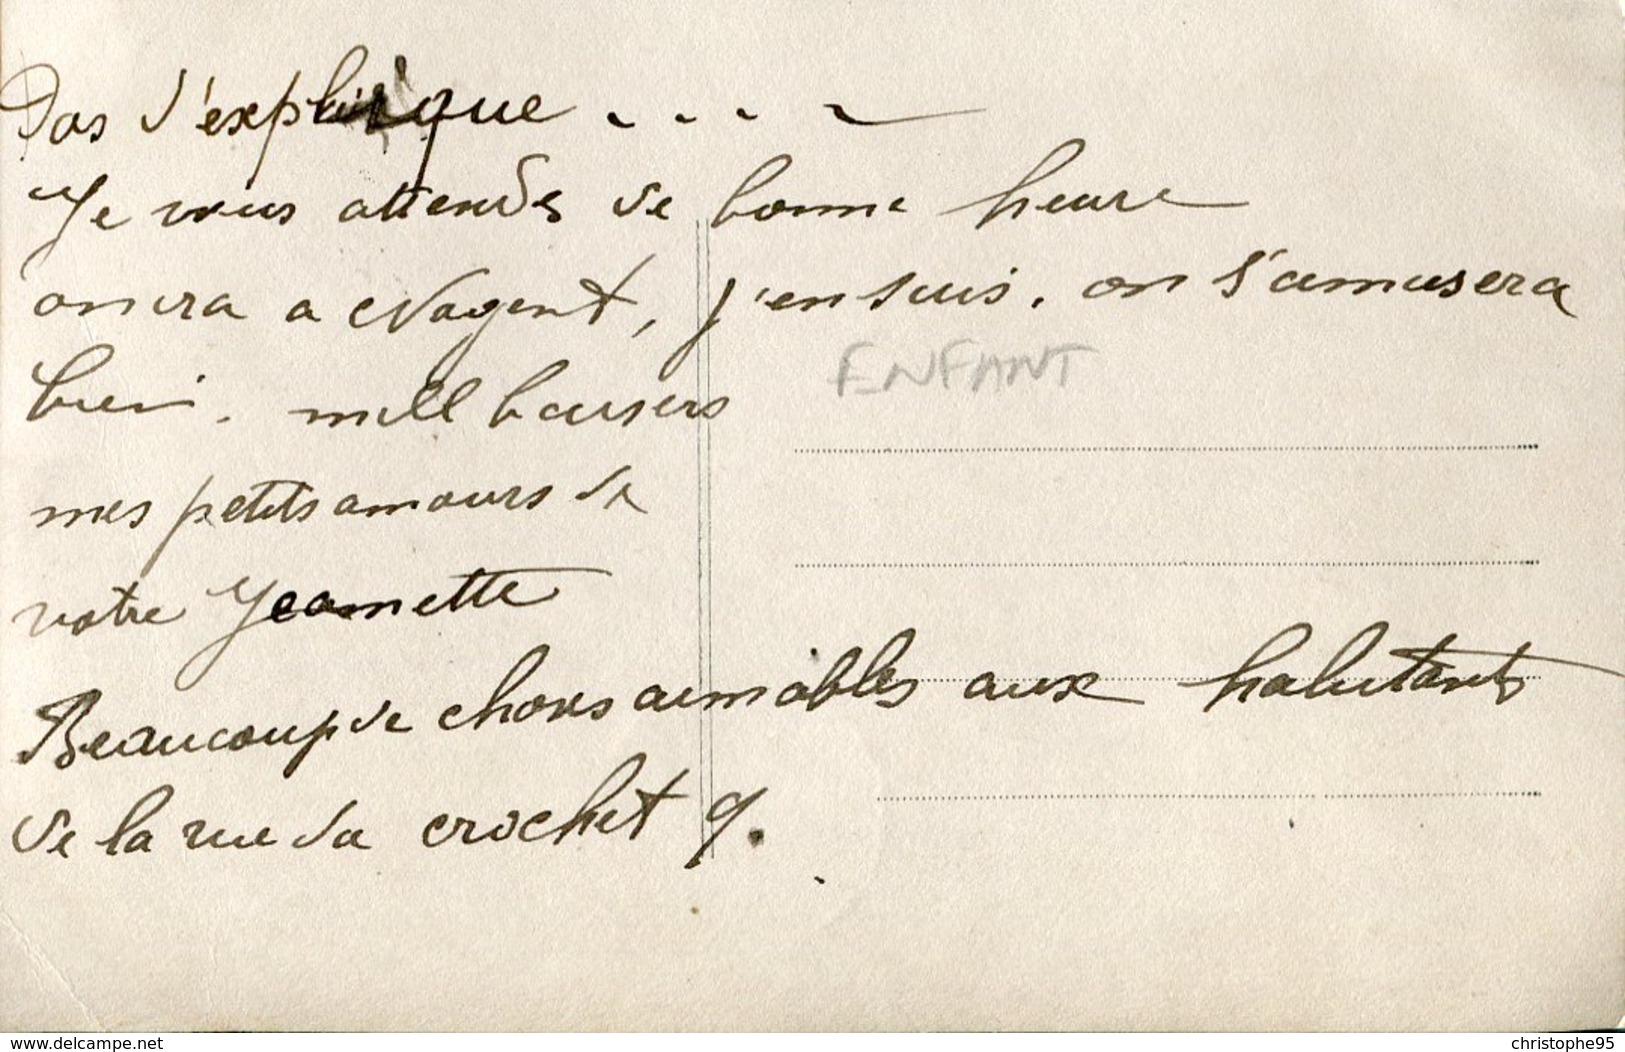 Pas s'explique . . . .
Je vous attends de bonne heure
on ira a Nogent, j'en suis. on s'amusera
bien. mill baisers
ENFANT
mes petits amours de
votre Jeannette
Beaucoup de choses aimables aux habitants
de la rue du crochet 9.
www.delcampe.net
christophe95